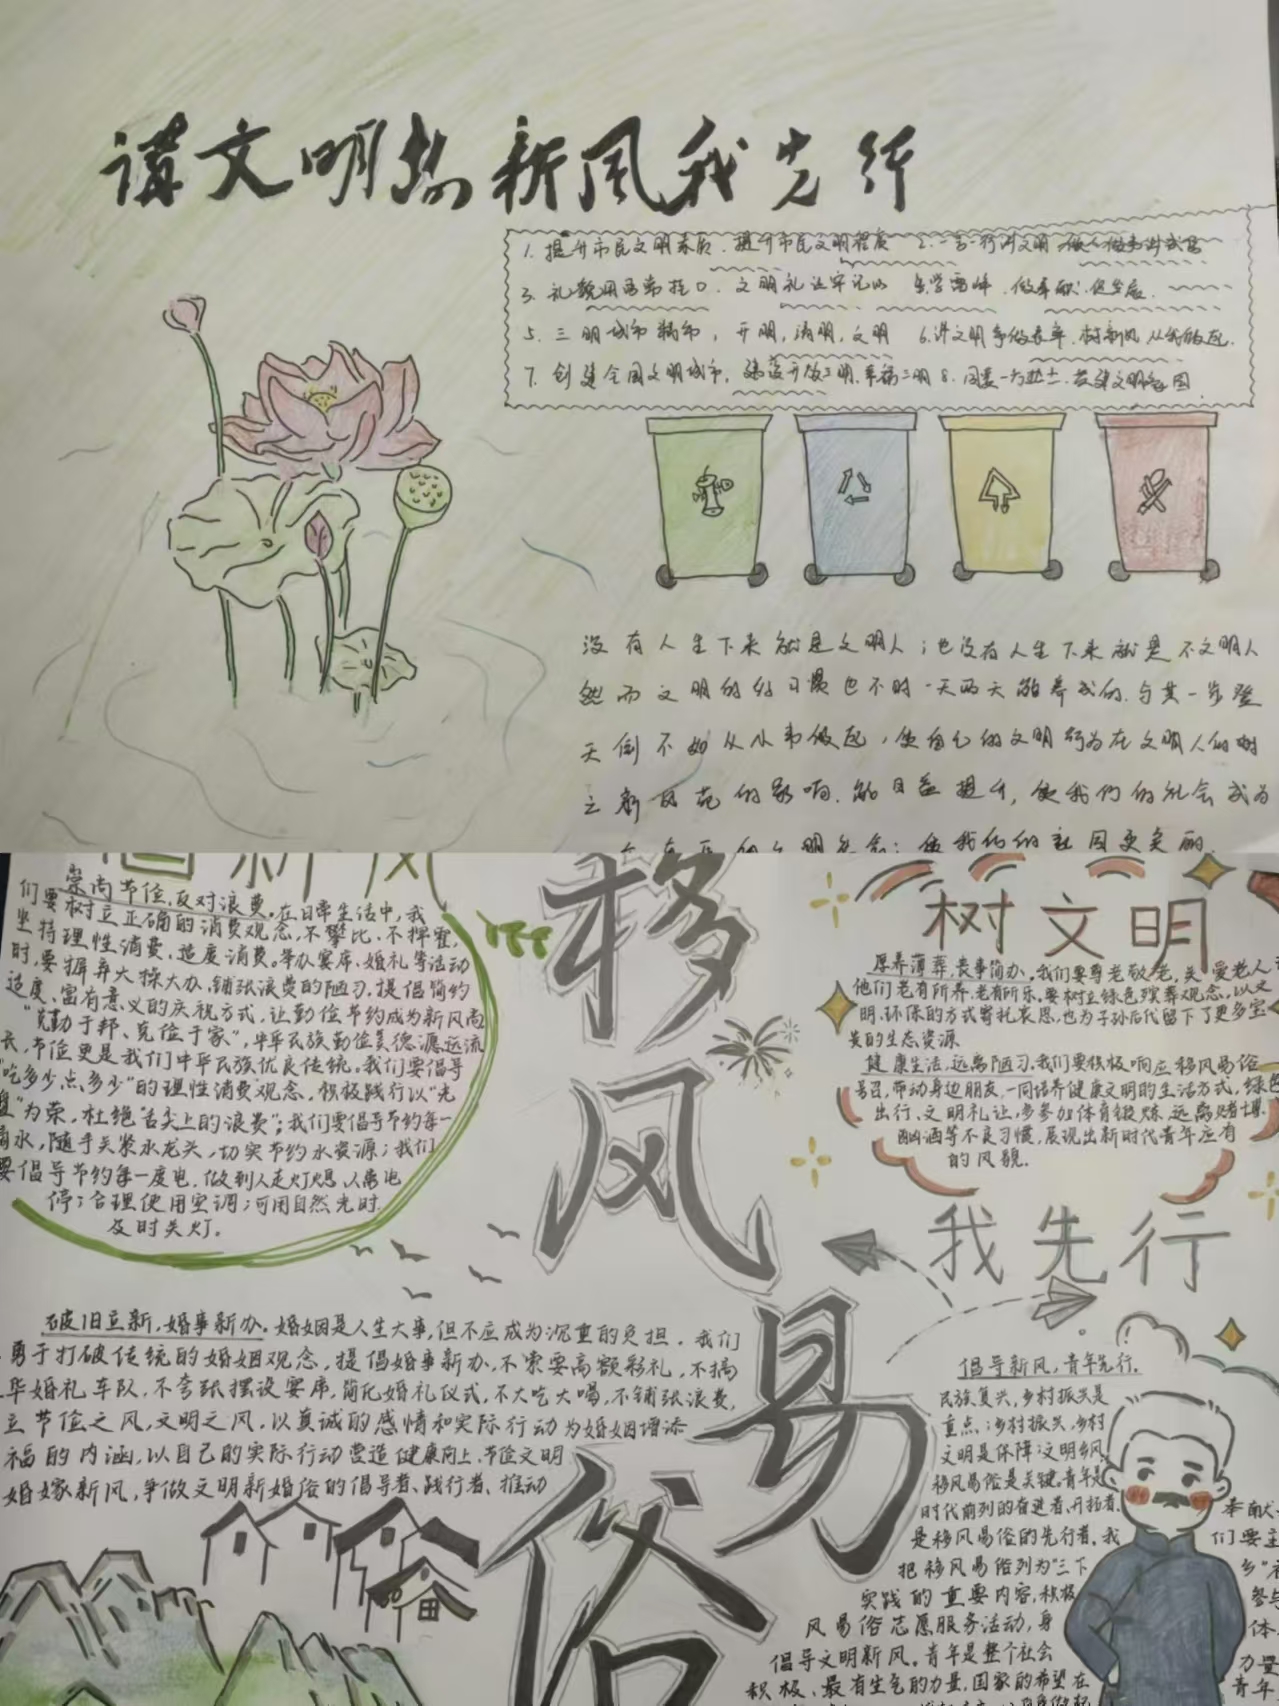 讲文明树新风我先行
1. 提升市民文明素质、提升市民文明程度 2. 一言一行讲文明
3. 礼貌用语常挂口、文明礼让牢记心
5. 三明城市精神，开明，清明，文明 6. 讲文明争做表率，树新风从我做起.
7. 创建全国文明城市，建设开放三明、幸福三明 8.
没有人生下来就是文明人；也没有人生下来就是不文明人
然而文明的好习惯也不时一天两天能养成的.与其一步登
天倒不如从小事做起，使自己的文明行为在文明人的树
立新风范的影响.能日益提升，使我们的社会成为
倡新风
崇尚节俭,反对浪费。在日常生活中,我
们要树立正确的消费观念,不攀比、不挥霍,
坚持理性消费、适度消费。举办宴席、婚礼等活动
时,要摒弃大操大办、铺张浪费的陋习,提倡简约
适度、富有意义的庆祝方式,让勤俭节约成为新风尚
"克勤于邦、克俭于家",中华民族勤俭美德源远流
长,节俭更是我们中华民族优良传统。我们要倡导
"吃多少点多少"的理性消费观念,积极践行以"光
盘"为荣,杜绝"舌尖上的浪费";我们要倡导节约每一
滴水,随手关紧水龙头,切实节约水资源;我们
要倡导节约每一度电,做到人走灯熄、人离电
停;合理使用空调;可用自然光时
及时关灯。
移
风
易
俗
树文明
厚养薄葬,丧事简办。我们要尊老敬老,关爱老人
他们老有所养、老有所乐。要树立绿色殡葬观念,以文
明、环保的方式寄托哀思,也为子孙后代留下了更多宝
贵的生态资源
健康生活,远离陋习.我们要积极响应移风易俗
号召,带动身边朋友,一同培养健康文明的生活方式,绿色
出行、文明礼让,多参加体育锻炼,远离赌博、
酗酒等不良习惯,展现出新时代青年应有
的风貌.
我先行
破旧立新,婚事新办.婚姻是人生大事,但不应成为沉重的负担.我们
勇于打破传统的婚姻观念,提倡婚事新办,不索要高额彩礼,不搞
华婚礼车队,不夸张摆设宴席,简化婚礼仪式,不大吃大喝,不铺张浪费,
立节俭之风,文明之风,以真诚的感情和实际行动为婚姻增添
福的内涵,以自己的实际行动营造健康向上、节俭文明
婚嫁新风,争做文明新婚俗的倡导者、践行者、推动
倡导新风,青年先行.
民族复兴,乡村振兴是
重点;乡村振兴,乡村
文明是保障;文明乡风,
移风易俗是关键.青年是
时代前列的奋进者、开拓者、奉献
是移风易俗的先行者.我们要主
把移风易俗列为"三下乡"
实践的重要内容,积极参与
风易俗志愿服务活动,身体
倡导文明新风.青年是整个社会力量
积极、最有生气的力量,国家的希望在青年